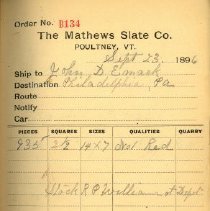 Order No. B134
The Mathews Slate Co.
POULTNEY, VT.
Sept 23, 1896
Ship to John D. Esmack
Destination Philadelphia, Pa
Route
Notify
Car
PIECES SQUARES SIZES QUALITIES QUARRY
935 3 1/2 14 x 7 No 1 Red
Stock R P William St Depot